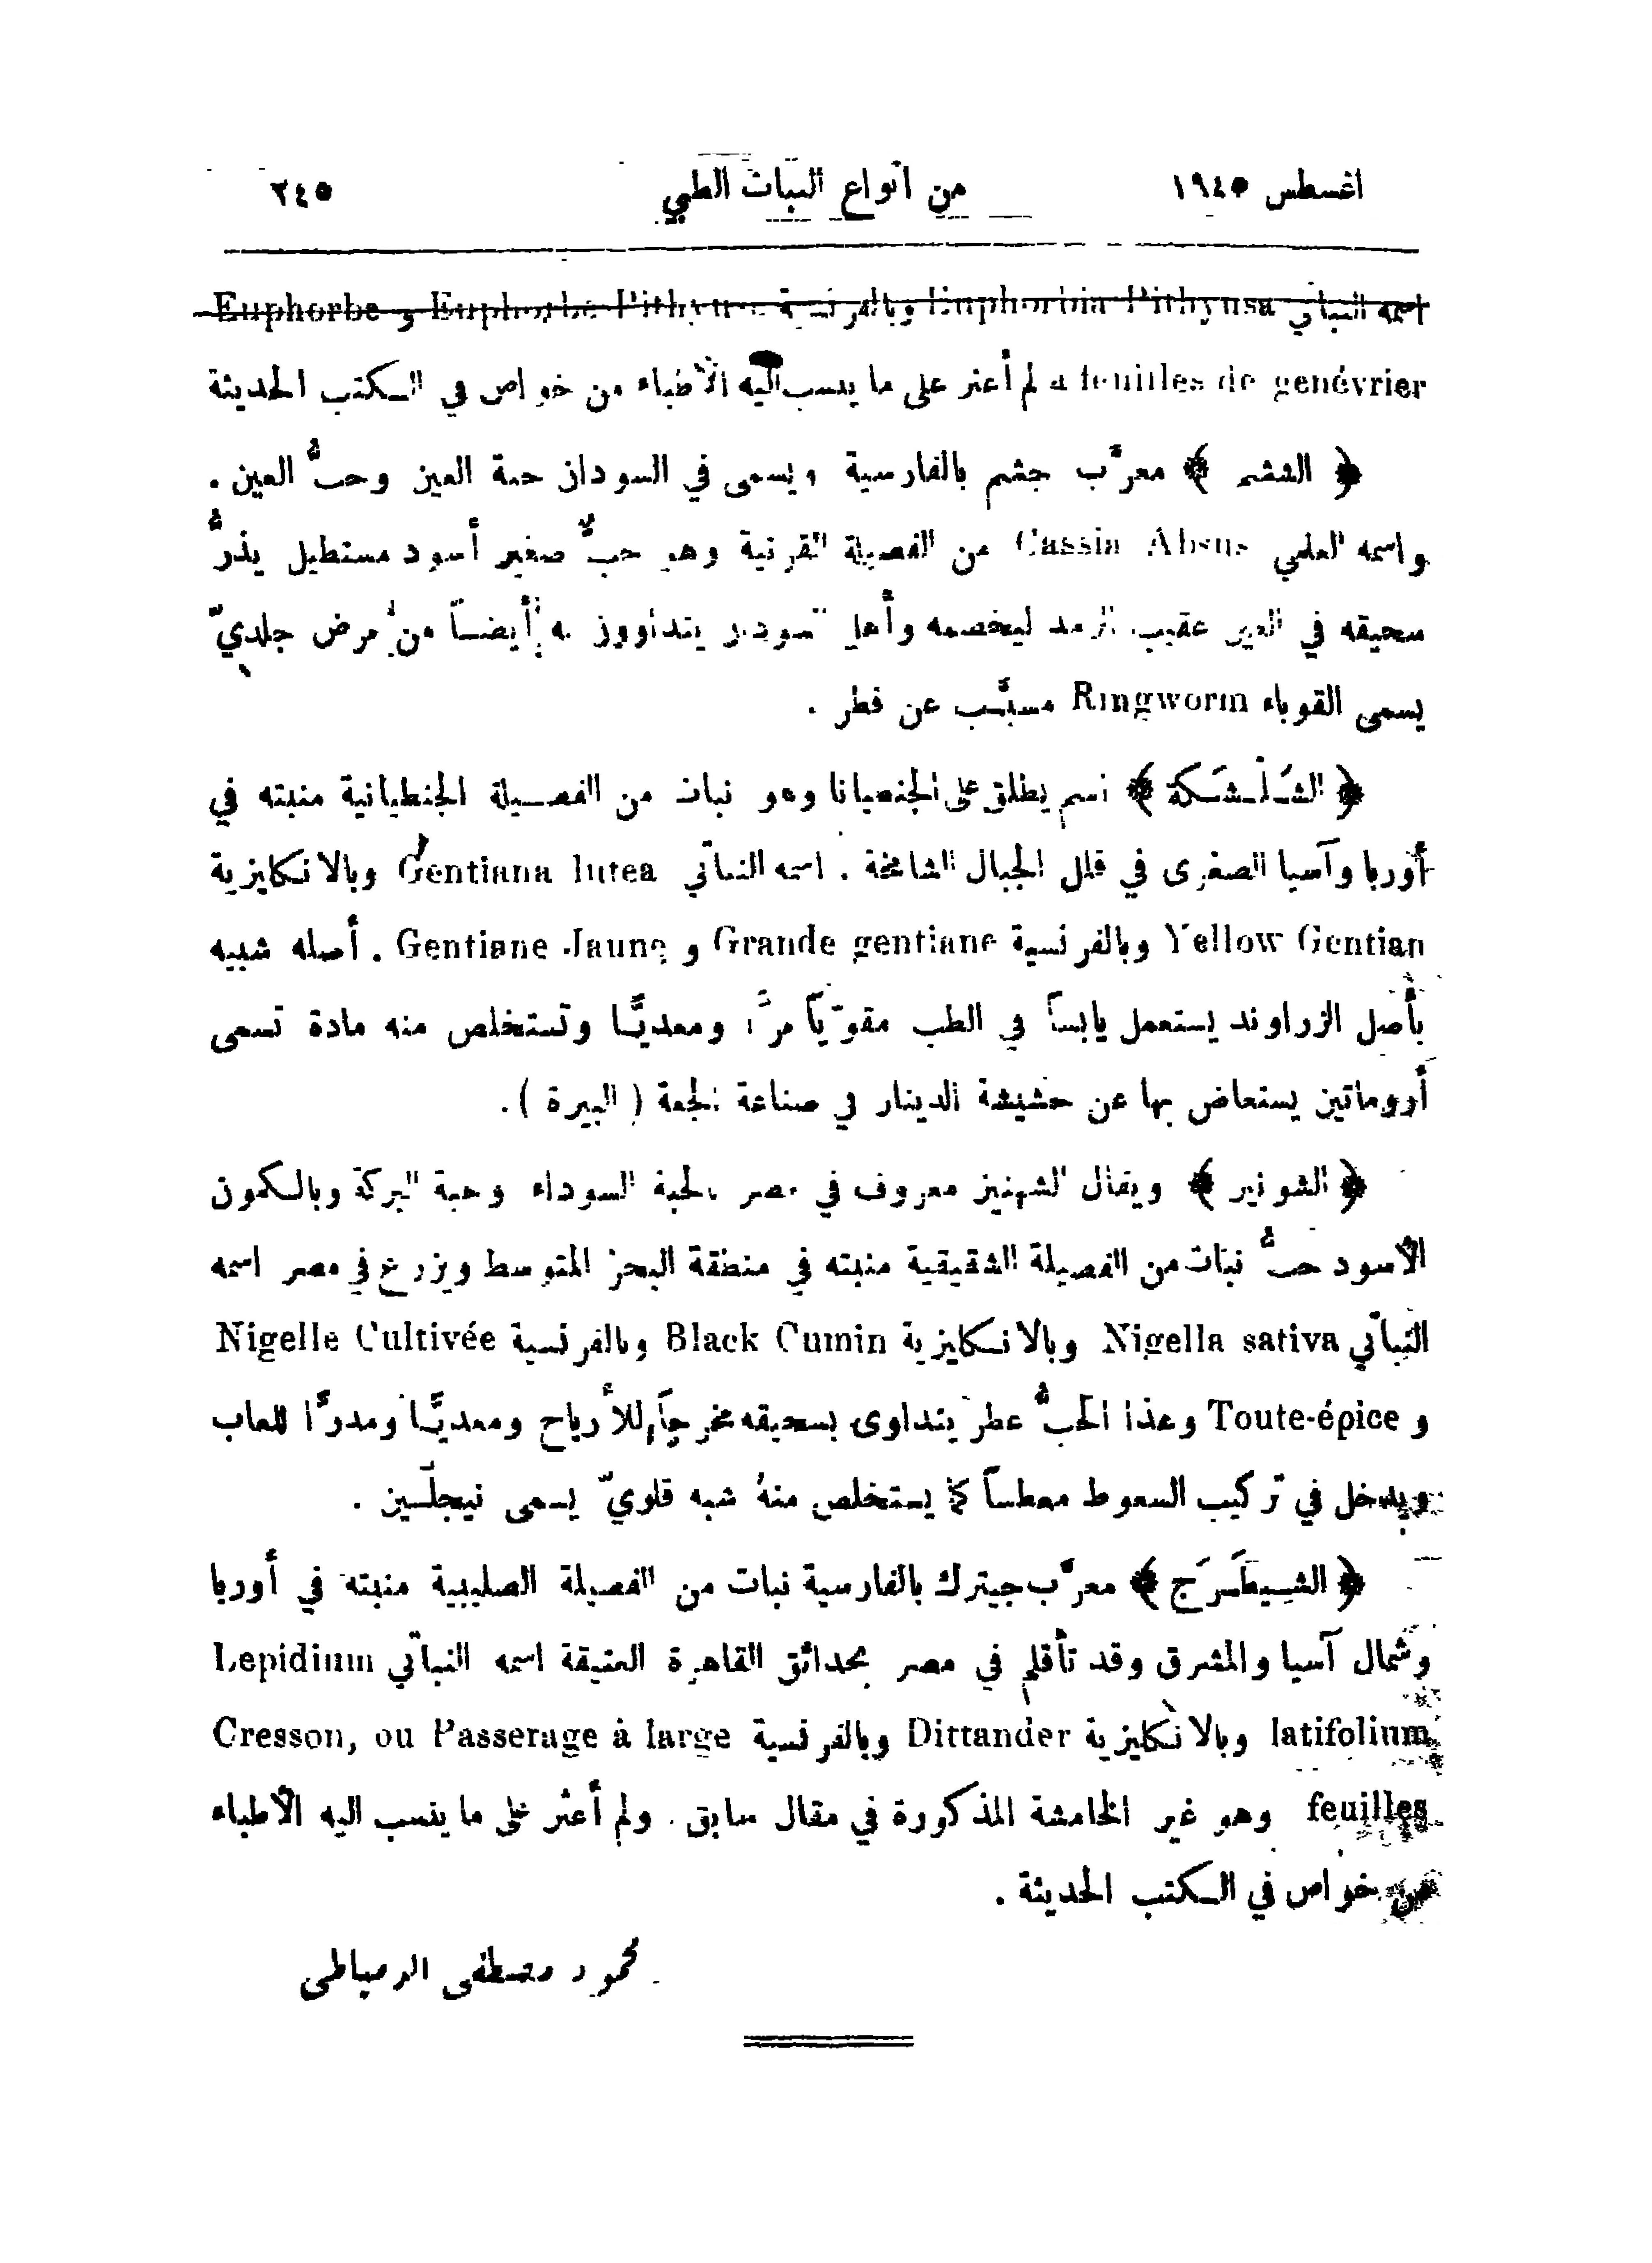 اغسطس ١٩٤٥ من أنواع النبات الطبي ٢٤٥
اسمه النباتي Euphorbia Pithyusa وبالفرنسية Euphorbe Pithyuse و Euphorbe
a feuilles de genévrier لم أعثر على ما ينسب اليه الأطباء من خواص في الكتب الحديثة
﴿ الششم ﴾ معرَّب جشم بالفارسية ويسمى في السودان حبة العين وحبُّ العين .
واسمه العلمي Cassia Absus من الفصيلة القرنية وهو حبٌّ صغير أسود مستطيل يذرُّ
سحيقه في العين عقيب الرمد ليخصمه وأهل السودان يتداوون به أيضاً من مرض جلديّ
يسمى القوباء Ringworm مسبَّب عن فطر .
﴿ الشَلْشَكة ﴾ اسم يطلق على الجنطيانا وهو نبات من الفصيلة الجنطيانية منبته في
أوربا وآسيا الصغرى في قلل الجبال الشامخة . اسمه النباتي Gentiana lutea وبالانكليزية
Yellow Gentian وبالفرنسية Grande gentiane و Gentiane Jaune . أصله شبيه
بأصل الزراوند يستعمل يابساً في الطب مقوّياً مرًّا ومعديًّا وتستخلص منه مادة تسمى
أروماتين يستعاض بها عن حشيشة الدينار في صناعة الجعة ( البيرة ) .
﴿ الشونيز ﴾ ويقال الشهنيز معروف في مصر بالحبة السوداء وحبة البركة وبالكمون
الأسود حبُّ نبات من الفصيلة الشقيقية منبته في منطقة البحر المتوسط ويزرع في مصر اسمه
النباتي Nigella sativa وبالانكليزية Black Cumin وبالفرنسية Nigelle Cultivée
و Toute-épice وهذا الحبُّ عطر يتداوى بسحيقه مخرجاً للأرياح ومعديًّا ومدرًّا للعاب
ويدخل في تركيب السعوط معطساً كما يستخلص منهُ شبه قلويّ يسمى نيجلّسين .
﴿ الشِيطَرَج ﴾ معرَّب جيترك بالفارسية نبات من الفصيلة الصليبية منبته في أوربا
وشمال آسيا والمشرق وقد تأقلم في مصر بحدائق القاهرة العتيقة اسمه النباتي Lepidium
latifolium وبالانكليزية Dittander وبالفرنسية Cresson, ou Passerage à large
feuilles وهو غير الخامشة المذكورة في مقال سابق . ولم أعثر على ما ينسب اليه الأطباء
من خواص في الكتب الحديثة .
محمود مصطفى الدمياطى